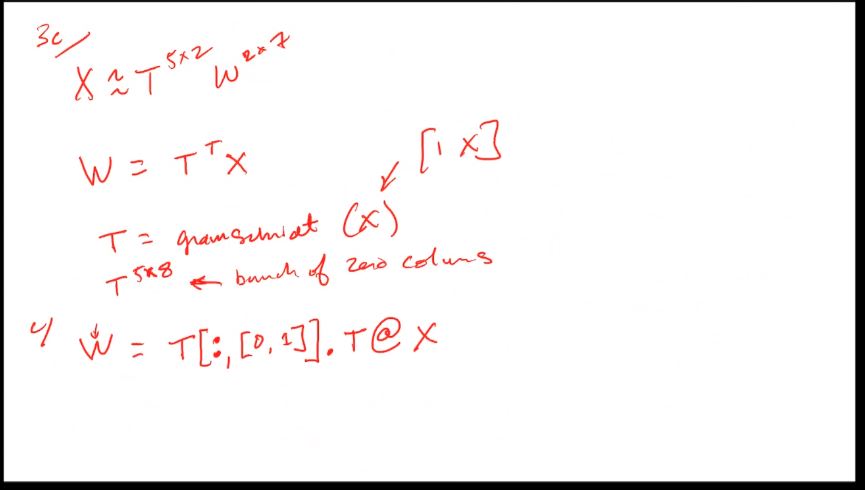 3c/
X ≈ T^5×2 W^2×7
W = T^T X
[1 X]
T = gramschmidt (X)
T^5×8 ← bunch of zero colums
c/ W = T[:,[0,1]].T@X